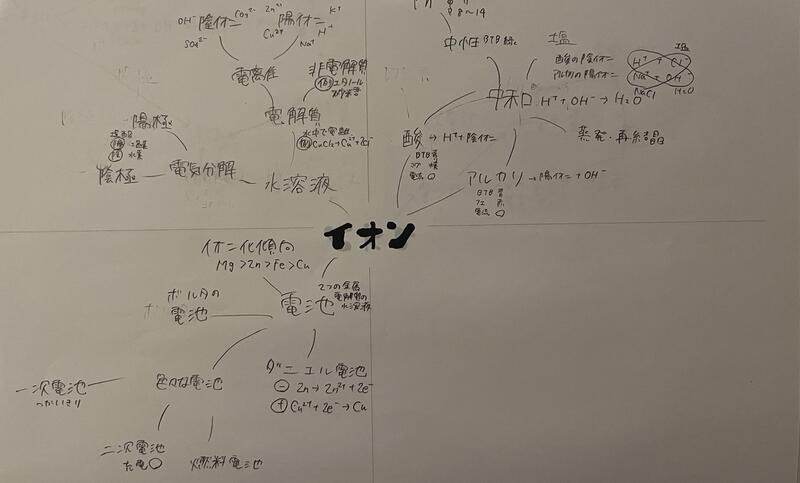 OH⁻ 陰イオン CO₃²⁻
SO₄²⁻
Zn²⁺ 陽イオン K⁺
Cu²⁺ H⁺
Na⁺
電離性
非電解質
例 エタノール
砂糖
電解質
水中で電離
例 CuCl₂→Cu²⁺+2Cl⁻
陽極
塩酸
陽 塩素
陰 水素
陰極
電気分解
水溶液
8〜14
中性 BTB 緑
塩
酸の陰イオン
アルカリの陽イオン
塩
H⁺ + Cl⁻
Na⁺ + OH⁻
NaCl H₂O
中和 H⁺+OH⁻→H₂O
蒸発・再結晶
酸→H⁺+陰イオン
BTB 黄
電流○
アルカリ→陽イオン+OH⁻
BTB 青
フェ 赤
電流○
イオン
イオン化傾向
Mg>Zn>Fe>Cu
電池
2つの金属
電解質の
水溶液
ボルタの
電池
ダニエル電池
⊖ Zn→Zn²⁺+2e⁻
⊕ Cu²⁺+2e⁻→Cu
色々な電池
一次電池
つかいきり
二次電池
充電○
燃料電池